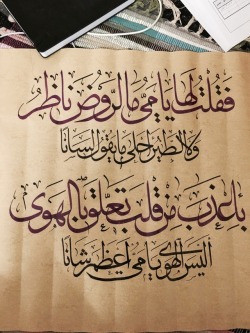 فقلت لها يا مي ما الروض ناظر
ولا الطير احلى ما يقول لسانا
باعذب من قلب تعلق بالهوى
اليس الهوى يا مي اعظم شانا